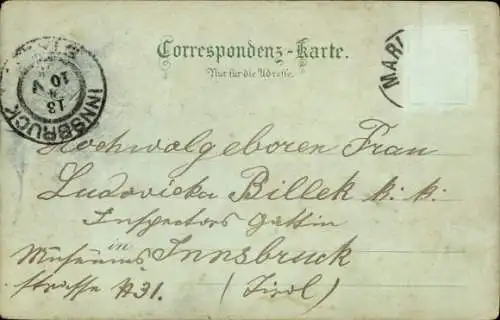 Correspondenz-Karte.
Nur für die Adresse.
MARI
INNSBRUCK
13
10
Hochwolgeboren Frau
Ludovicka Billek k. k.
Inspectors Gattin
in
Museums Innsbruck
strasse #31. (Tirol)